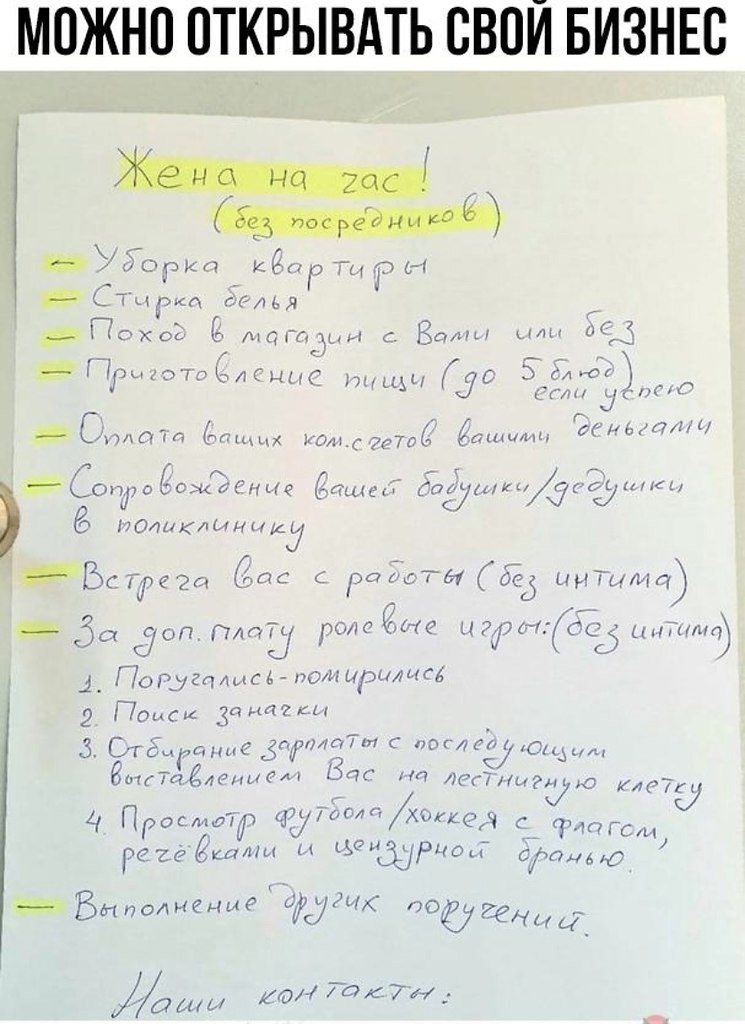 МОЖНО ОТКРЫВАТЬ СВОЙ БИЗНЕС
Жена на час!
(без посредников)
– Уборка квартиры
– Стирка белья
– Поход в магазин с Вами или без
– Приготовление пищи (до 5 блюд)
если успею
– Оплата ваших ком.счетов вашими деньгами
– Сопровождение вашей бабушки/дедушки
в поликлинику
– Встреча вас с работы (без интима)
– За доп. плату ролевые игры:(без интима)
1. Поругались-помирились
2. Поиск заначки
3. Отбирание зарплаты с последующим
выставлением Вас на лестничную клетку
4. Просмотр футбола/хоккея с флагом,
речёвками и цензурной бранью.
– Выполнение других поручений.
Наши контакты: